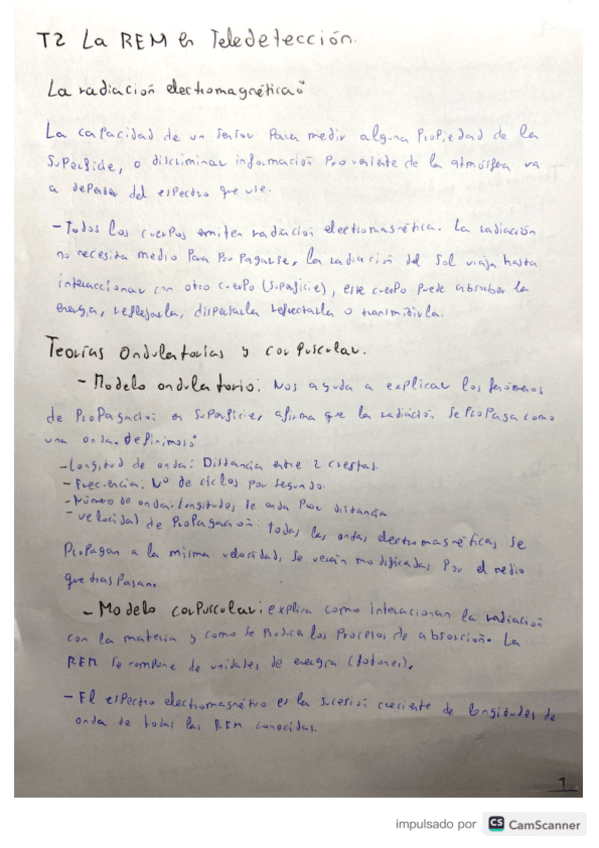 T2 La REM en Teledetección.
La radiación electromagnética:
La capacidad de un sensor para medir alguna propiedad de la
superficie, o discriminar información proveniente de la atmósfera va
a depender del espectro que use.
- Todos los cuerpos emiten radiación electromagnética. La radiación
no necesita medio para propagarse, la radiación del Sol viaja hasta
interaccionar con otro cuerpo (superficie), este cuerpo puede absorber la
energía, reflejarla, dispersarla refractarla o transmitirla.
Teorías ondulatorias y corpuscular.
- Modelo ondulatorio: Nos ayuda a explicar los fenómenos
de propagación en superficie, afirma que la radiación se propaga como
una onda. Definimos:
- Longitud de onda: Distancia entre 2 crestas.
- Frecuencia: Nº de ciclos por segundo.
- Número de onda: longitudes de onda por distancia
- Velocidad de propagación: todas las ondas electromagnéticas se
propagan a la misma velocidad, se verán modificadas por el medio
que traspasan.
- Modelo corpuscular: explica como interacionan la radiación
con la materia y como se produce los procesos de absorción. La
REM se compone de unidades de energía (fotones).
- El espectro electromagnético es la sucesión creciente de longitudes de
onda de todas las REM conocidas.
1
impulsado por CS CamScanner